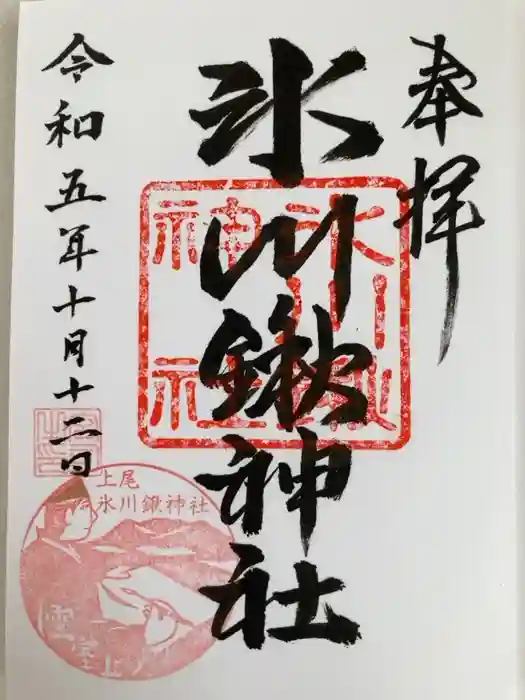 奉拝
氷川鍬神社
令和五年十月十二日
上尾
氷川鍬神社